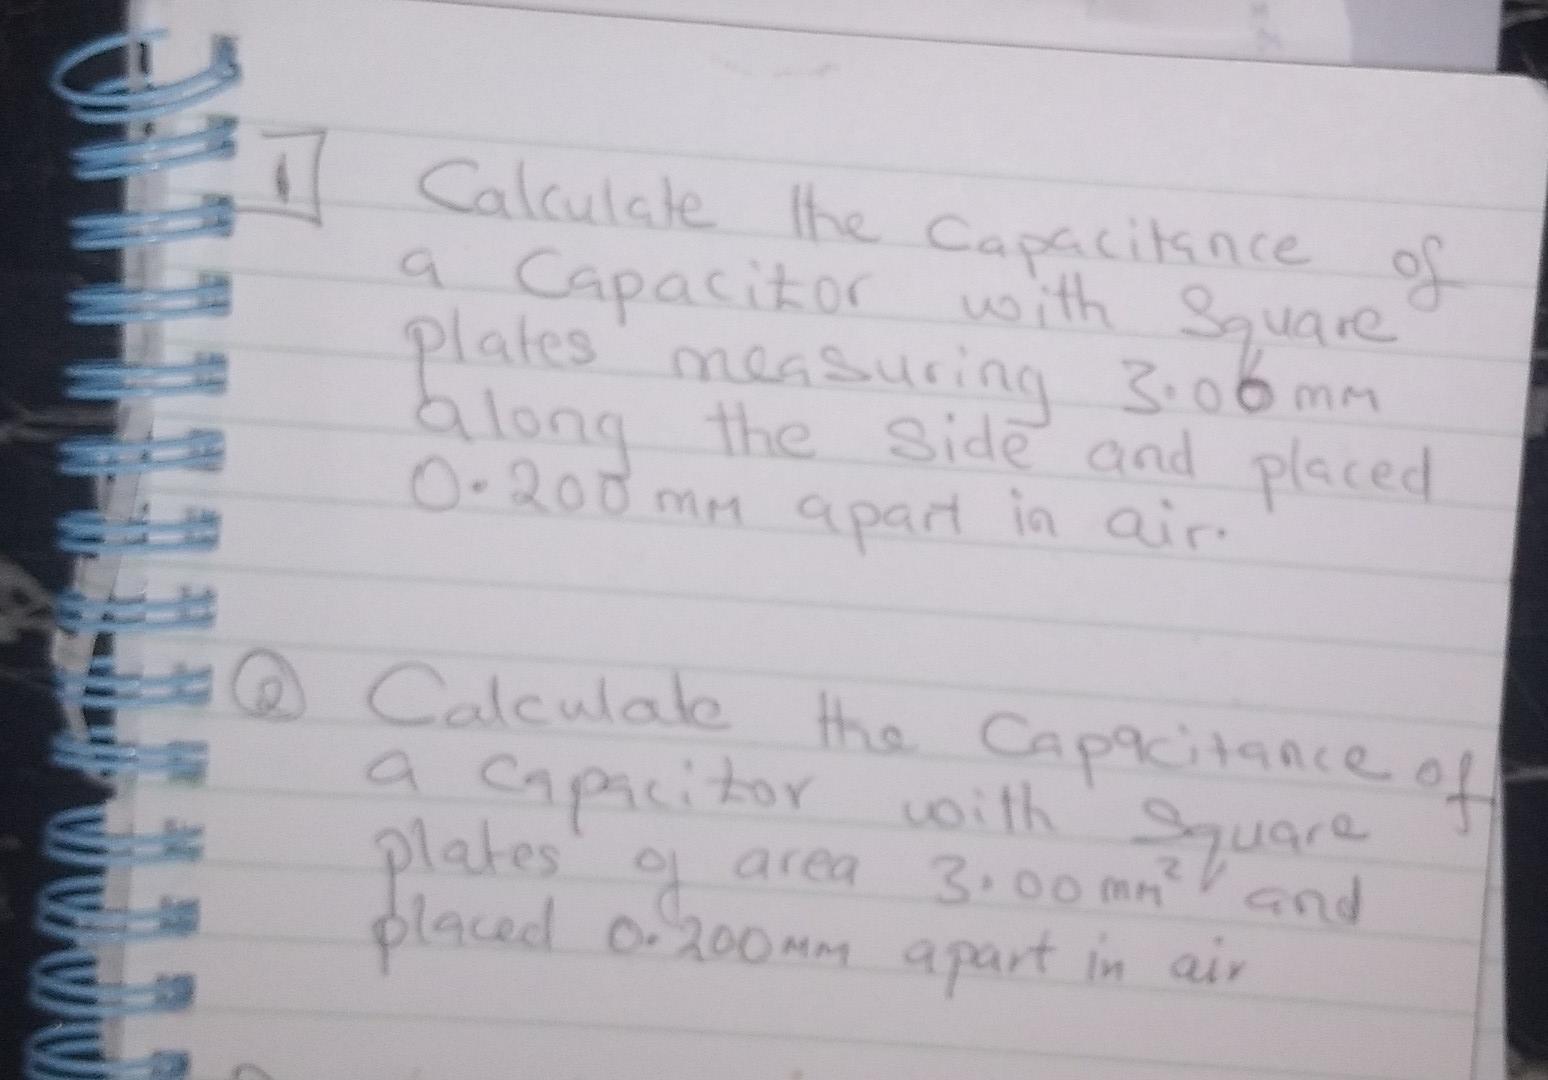 1 Calculate the Capacitance of
a Capacitor with Square
plates measuring 3.06 mm
along the side and placed
0.200 mm apart in air.
2 Calculate the Capacitance of
a capacitor with square
plates of area 3.00 mm² and
placed 0.200mm apart in air